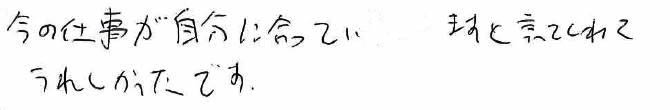 今の仕事が自分に合ってい ますと言てくれて
うれしかったです.